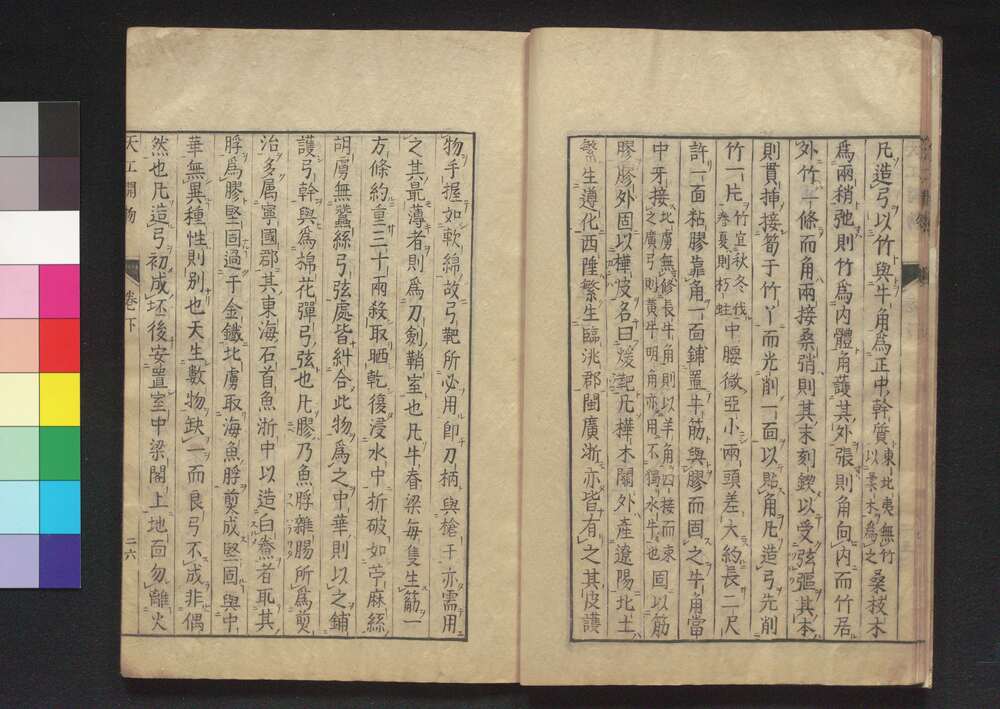 凡造弓以竹與牛角為正中幹質東北夷無竹以柔木為之桑枝木
為兩稍弛則竹為内體角護其外張則角向内而竹居
外竹一條而角兩接桑弰則其末刻鍥以受弦彄其本
則貫挿接筍于竹丫而光削一面以貼角凡造弓先削
竹一片竹宜秋冬伐春夏則朽蛀中腰微亞小兩頭差大約長二尺
許一面粘膠靠角一面鋪置牛筋與膠而固之牛角當
中牙接北虜無修長牛角則以羊角四接而束之廣弓則黄牛明角亦用不獨水牛也固以筋
膠膠外固以樺皮名曰煖靶凡樺木關外產遼陽北土
繁生遵化西陲繁生臨洮郡閩廣浙亦皆有之其皮護
物手握如軟綿故弓靶所必用即刀柄與槍干亦需用
之其最薄者則為刀劍鞘室也凡牛脊梁每隻生筋一
方條約重三十兩殺取晒乾復浸水中折破如苧麻絲
胡虜無蠶絲弓弦處皆糾合此物為之中華則以之鋪
護弓幹與為棉花彈弓弦也凡膠乃魚脬雜腸所為煎
治多屬寧國郡其東海石首魚浙中以造白鯗者取其
脬為膠堅固過于金鐵北虜取海魚脬煎成堅固與中
華無異種性則别也天生數物缺一而良弓不成非偶
然也凡造弓初成坯後安置室中梁閣上地面勿離火
天工開物
卷下
二六